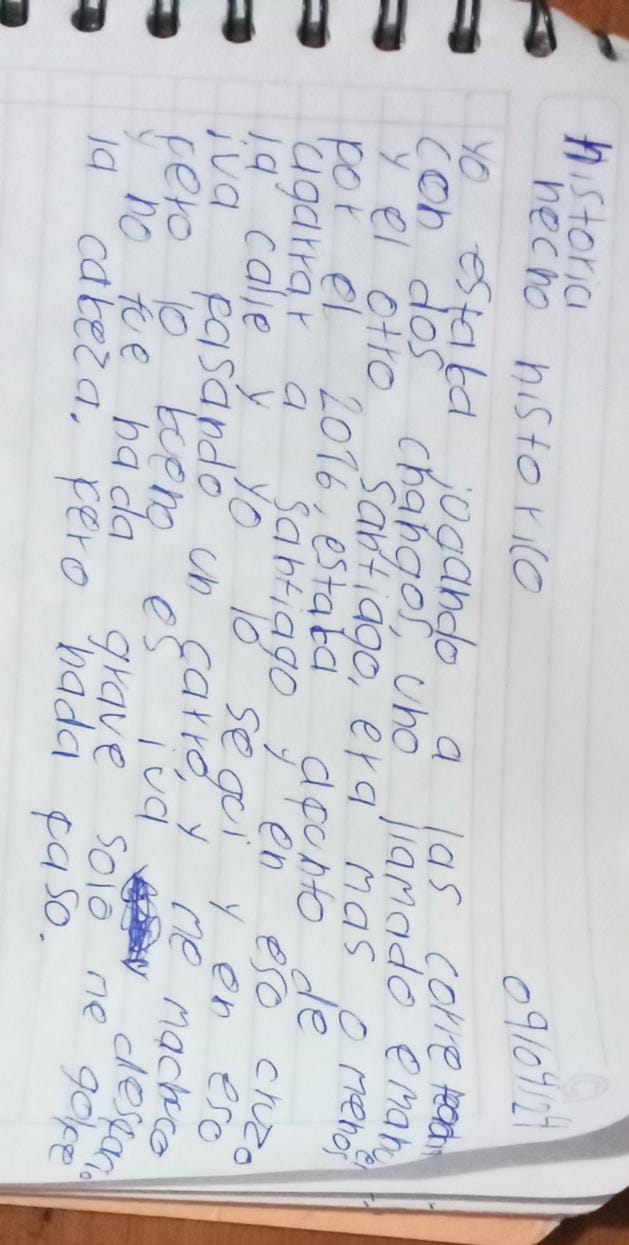 historia
hecho historico 09/04/24
yo estaba jogando a las corre
con dos changos, uno llamado emanuel
y el otro santiago, era mas o menos
por el 2016, estaba apunto de
agarrar a santiago y en eso cruzo
la calle y yo lo segui y en eso
iva pasando un carro, y me machuco
pero lo bueno es iva despacio
y no fue nada grave solo me golpe
la cabeza. pero nada paso.